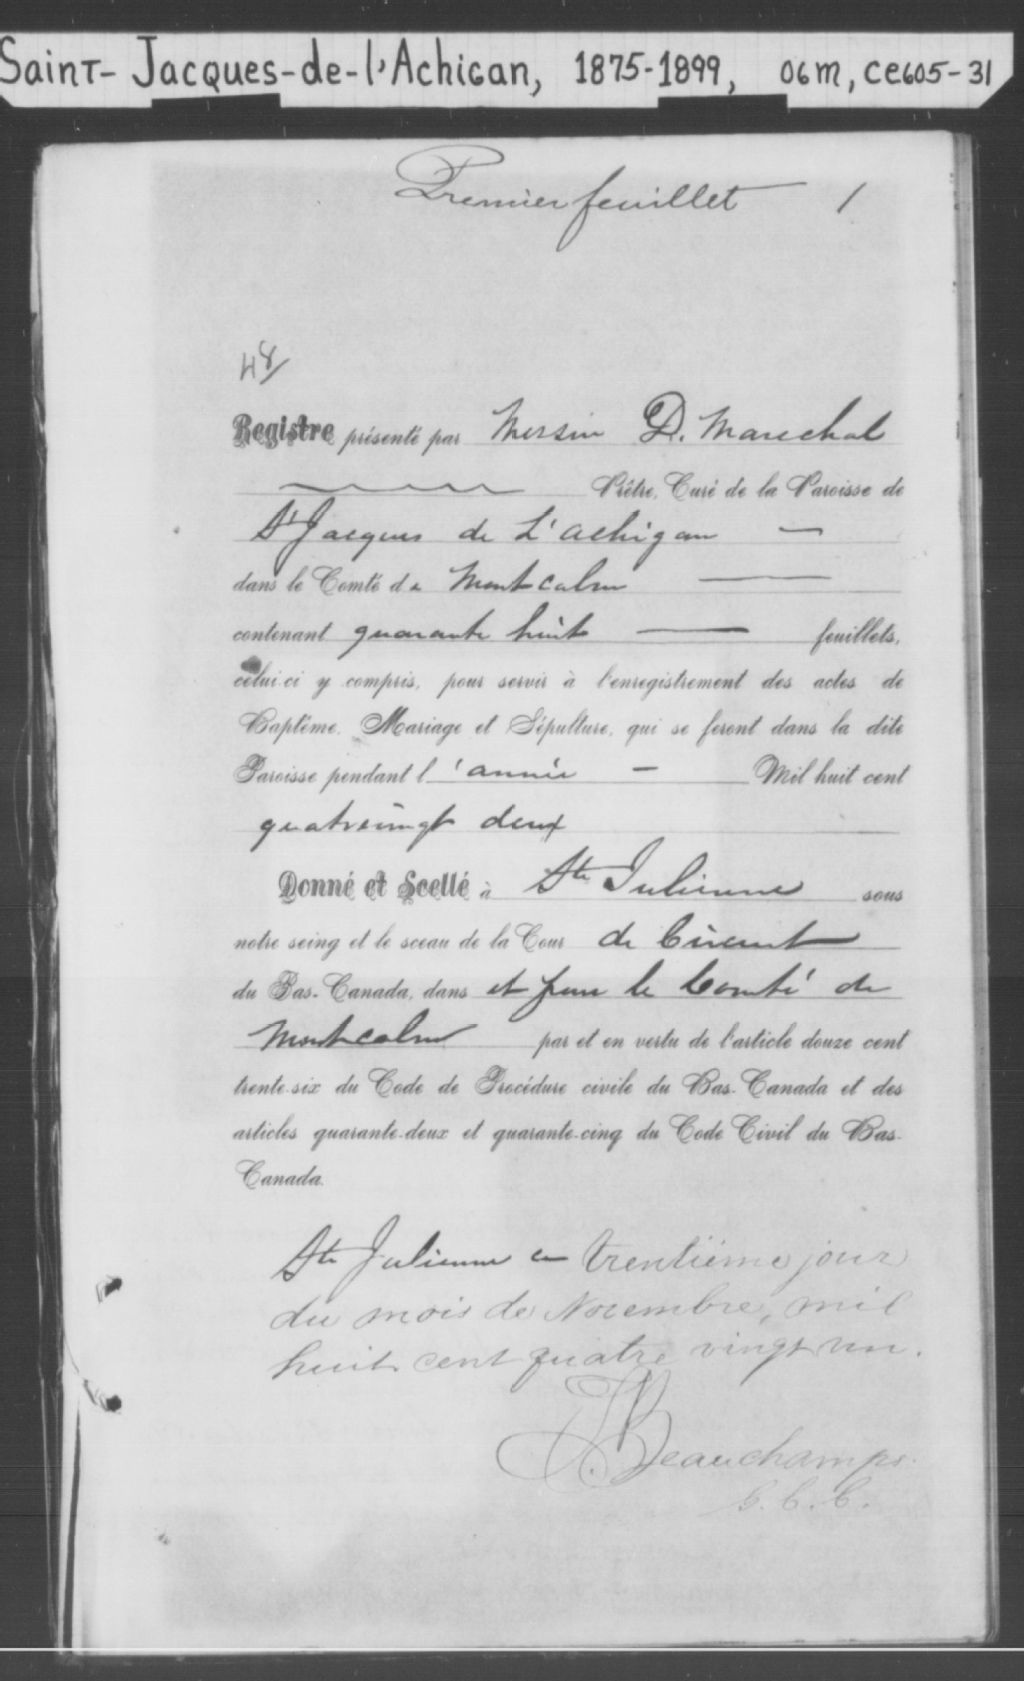 Saint-Jacques-de-l'Achigan, 1875-1899, 06m, ce605-31
Premier feuillet 1
48/
Registre présenté par Messire D. Marechal
Prêtre, Curé de la Paroisse de
St Jacques de L'achigan —
dans le Comté de Montcalm —
contenant quarante huit — feuillets,
celui-ci y compris, pour servir à l'enregistrement des actes de
Baptême, Mariage et Sépulture, qui se feront dans la dite
Paroisse pendant l'année — Mil huit cent
quatrevingt deux
Donné et Scellé à Ste Julienne sous
notre seing et le sceau de la Cour de Circuit
du Bas-Canada, dans et pour le Comté de
Montcalm par et en vertu de l'article douze cent
trente-six du Code de Procédure civile du Bas-Canada et des
articles quarante-deux et quarante-cinq du Code Civil du Bas-
Canada.
Ste Julienne ce trentième jour
du mois de Novembre, mil
huit cent quatre vingt un.
Beauchamps.
G. C. C.